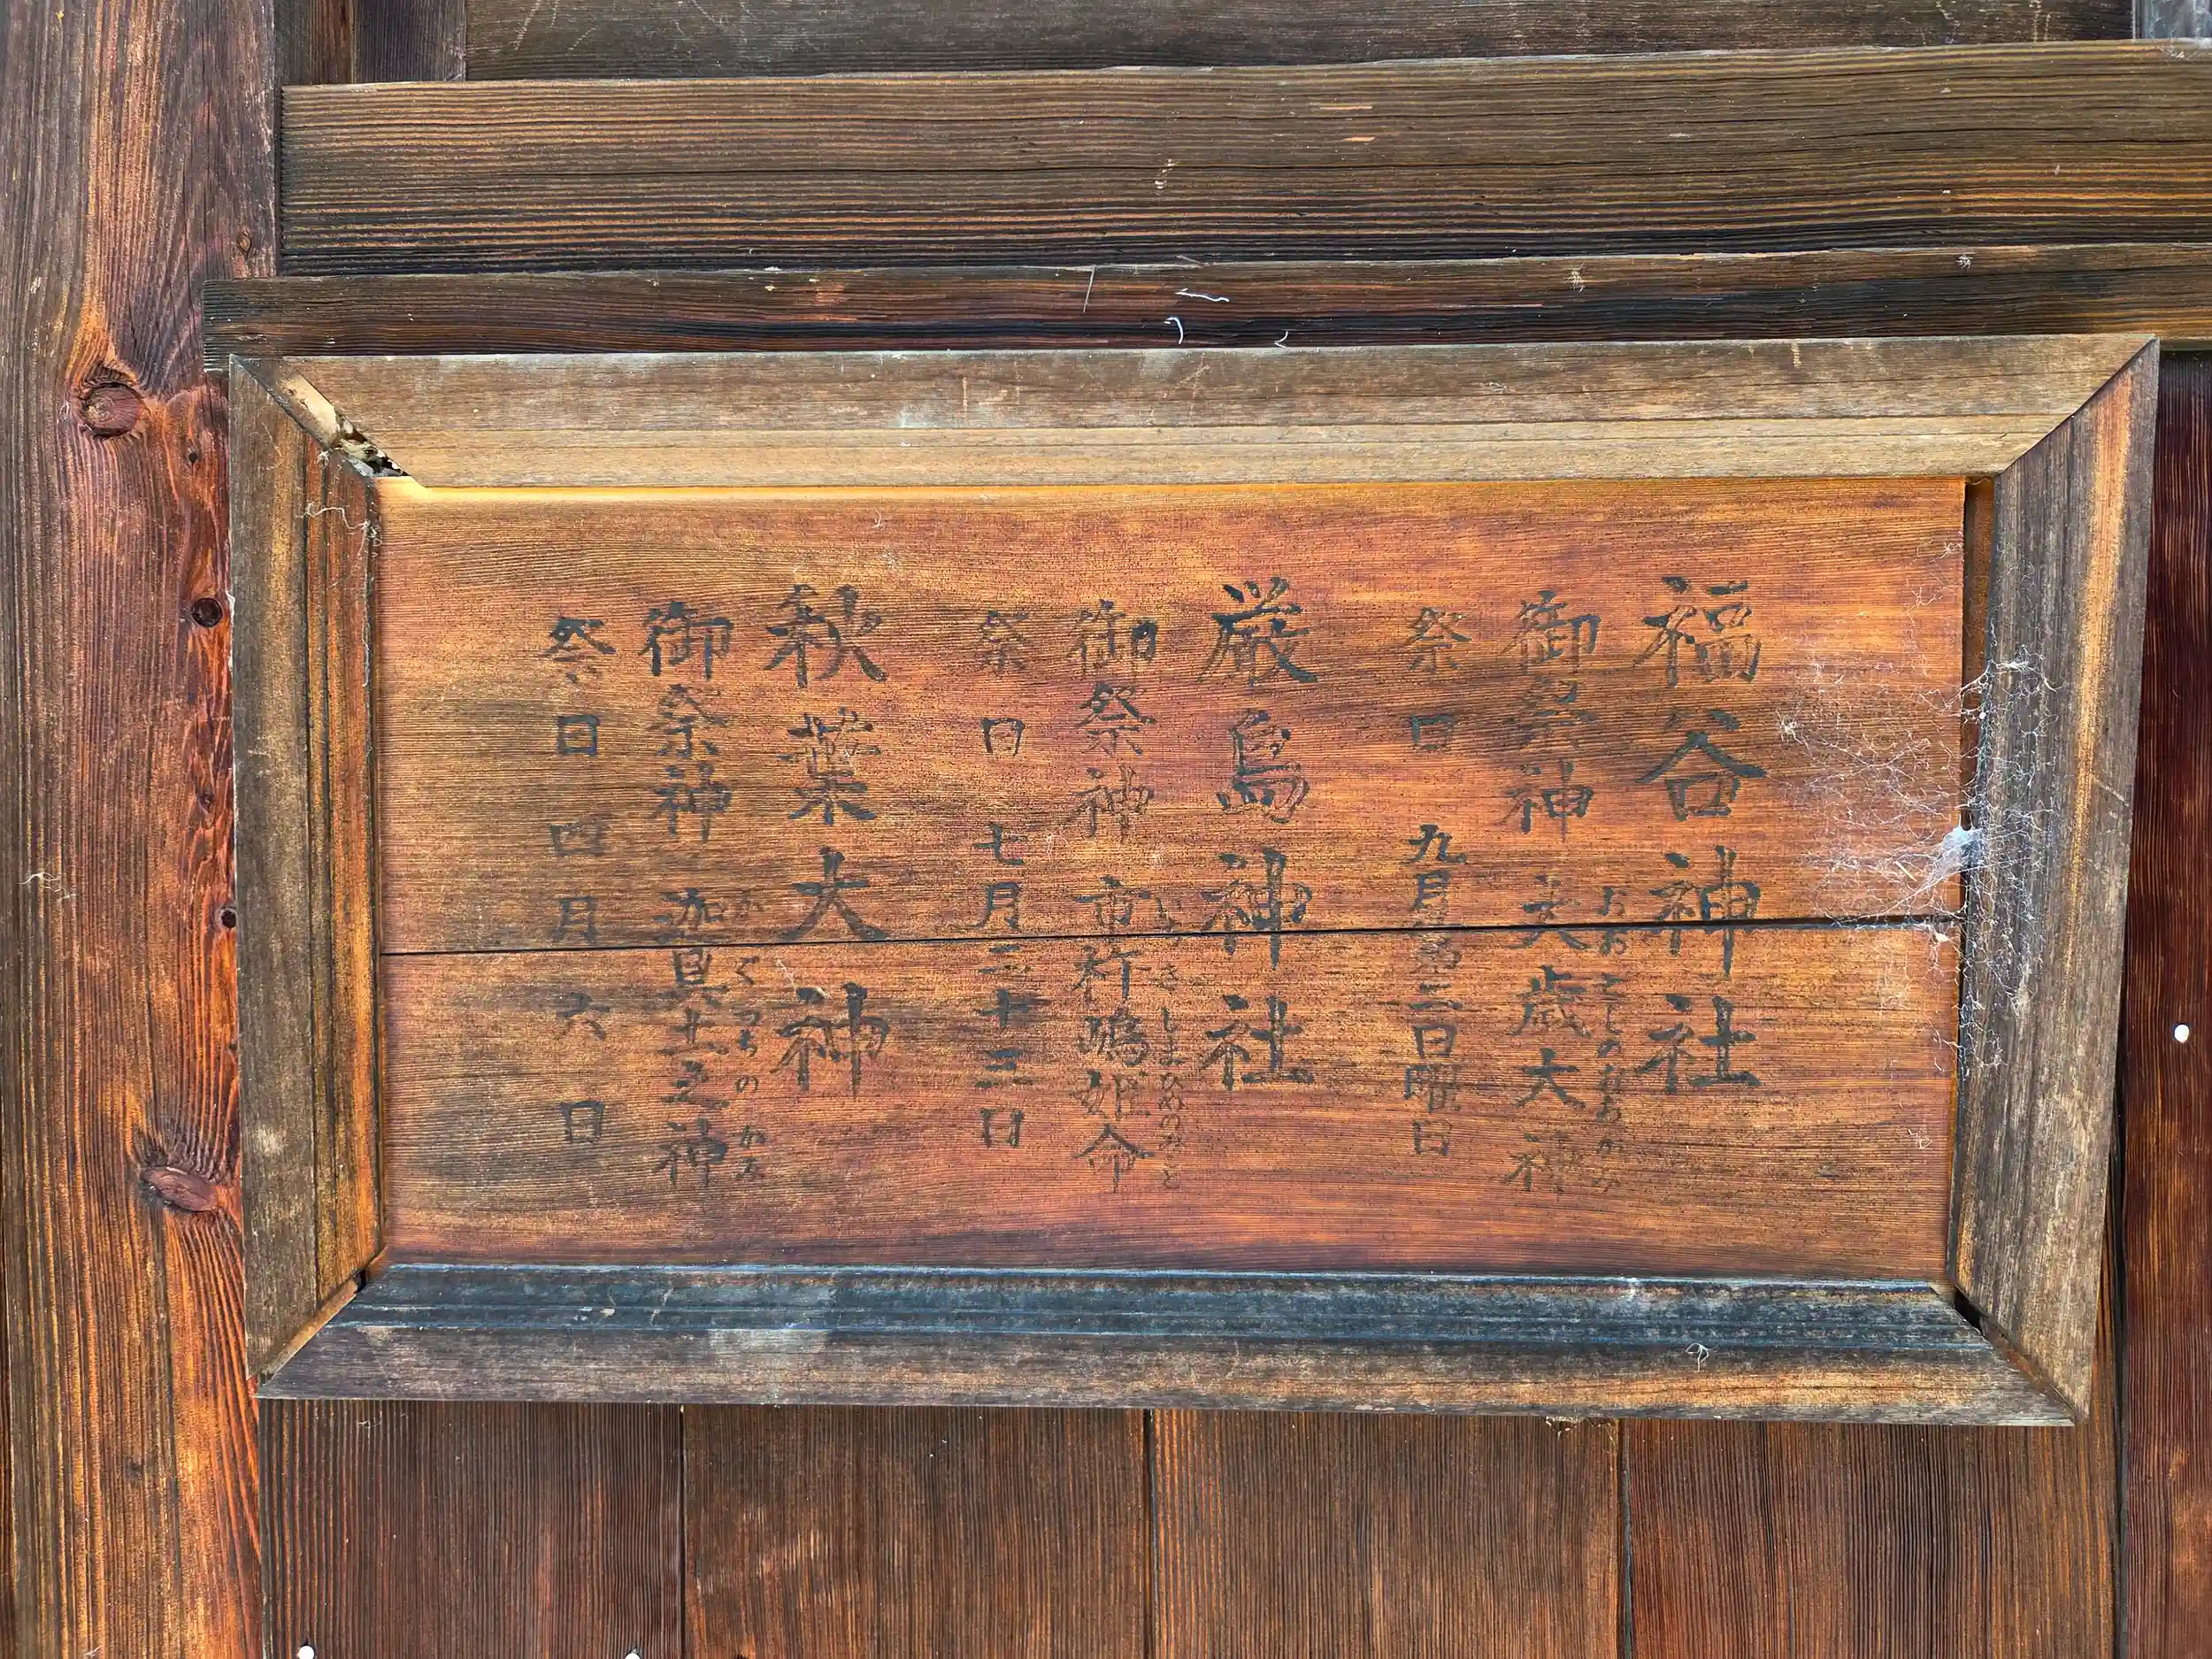 福谷神社
御祭神 大歳大神
おおとしのおおかみ
祭日 九月第二日曜日
厳島神社
御祭神 市杵嶋姫命
いちきしまひめのみこと
祭日 七月二十三日
秋葉大神
御祭神 迦具土之神
かぐつちのかみ
祭日 四月六日